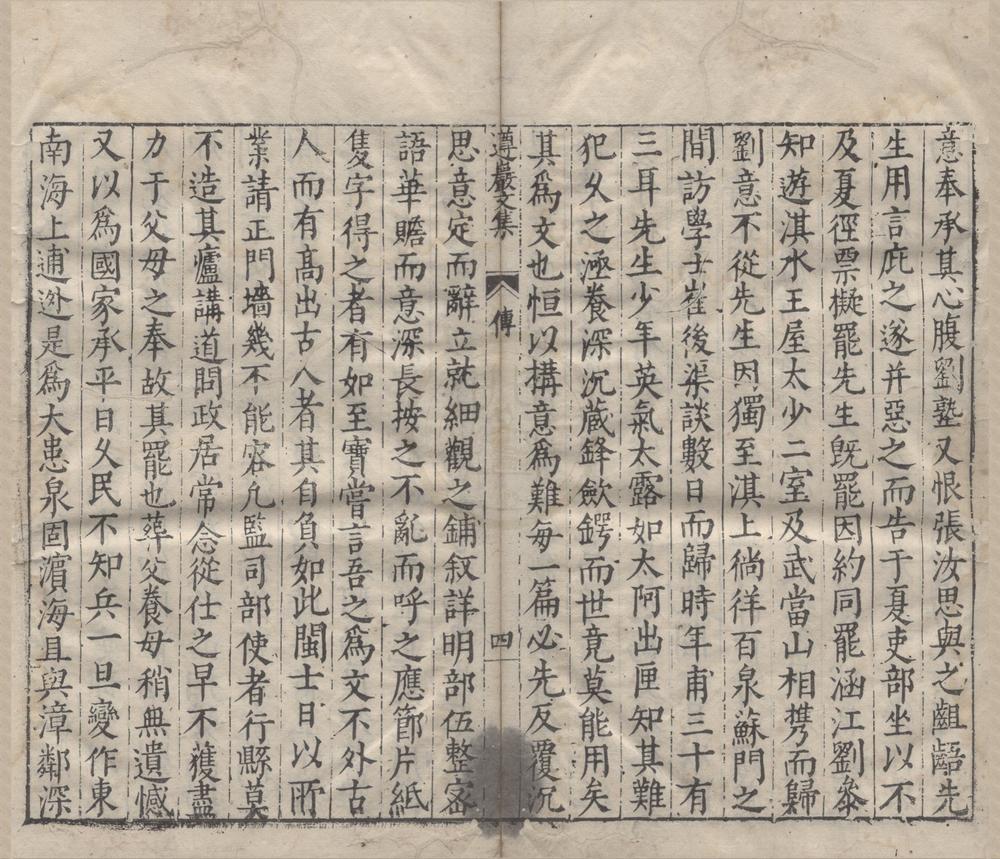 意奉承其心腹劉塾又恨張汝思與之齟齬先
生用言庇之遂并惡之而告于夏吏部坐以不
及夏徑票擬罷先生旣罷因約同罷涵江劉叅
知遊淇水王屋太少二室及武當山相携而歸
劉意不從先生因獨至淇上徜徉百泉蘇門之
間訪學士崔後渠談數日而歸時年甫三十有
三耳先生少年英氣太露如太阿出匣知其難
犯久之漚養深沉蔵鋒歛鍔而世竟莫能用矣
其爲文也恒以搆意爲難每一篇必先反覆沉
遵巖文集 傳 四
思意定而辭立就細觀之鋪叙詳明部伍整密
語華贍而意深長按之不亂而呼之應節片紙
隻字得之者有如至寶嘗言吾之爲文不外古
人而有高出古人者其自負如此閩士日以所
業請正門墻幾不能容凡監司部使者行縣莫
不造其廬講道問政居常念從仕之早不獲盡
力于父母之奉故其罷也葬父養母稍無遺憾
又以爲國家承平日久民不知兵一旦變作東
南海上逋逊是爲大患泉固濵海且與漳鄰深